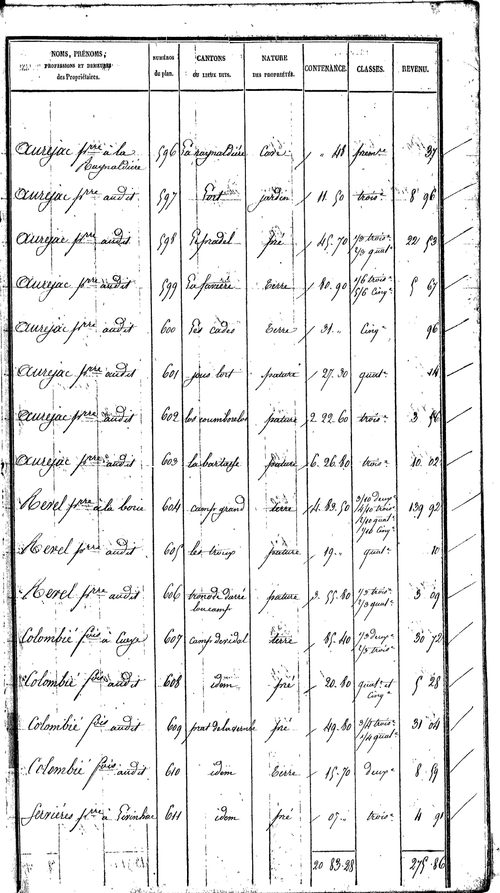 NOMS, PRÉNOMS, PROFESSIONS ET DEMEURES des Propriétaires. NUMÉROS du plan. CANTONS OU LIEUX DITS. NATURE DES PROPRIÉTÉS. CONTENANCE. CLASSES. REVENU.
Aurejac pre à la Raynaldiére 596 La raynaldiére Case " 48 prem.e 37
Aurejac pre audit 597 Lort jardin 11. 50 trois.e 8 96
Aurejac pre audit 598 Lepradel pré 45. 70 1/3 trois.e 2/3 quat.e 22 53
Aurejac pre audit 599 terre 80. 90 1/6 trois.e 5/6 cinq.e 5 67
Aurejac pre audit 600 Les cades terre 31. " cinq.e 96
Aurejac pre audit 601 sous lort pature 27. 30 quat.e
Aurejac pre audit 602 pature 2. 22. 60 trois.e
Aurejac pre audit 603 pature 6. 26. 80 trois.e 10 02
Revel pre à la borie 604 camp grand terre 4. 89. 50 3/10 deux.e 4/10 trois.e 2/10 quat.e 1/10 cinq.e 139 92
Revel pre audit 605 les troux pature 19. " quat.e 10
Revel pre audit 606 pature 3. 55. 80 1/3 trois.e 2/3 quat.e 3 09
Colombié fois à 607 camp de vidal terre 85. 40 1/3 deux.e 2/3 trois.e 30 72
Colombié fois audit 608 idem pré 20. 80 quat.e et cinq.e 5 28
Colombié fois audit 609 prat delavernhe pré 49. 80 3/4 trois.e 1/4 quat.e 31 04
Colombié fois audit 610 idem terre 15. 70 deux.e 8 59
Serviéres pre à 611 idem pré 07. " trois.e 4 91
20 83. 28 275. 86